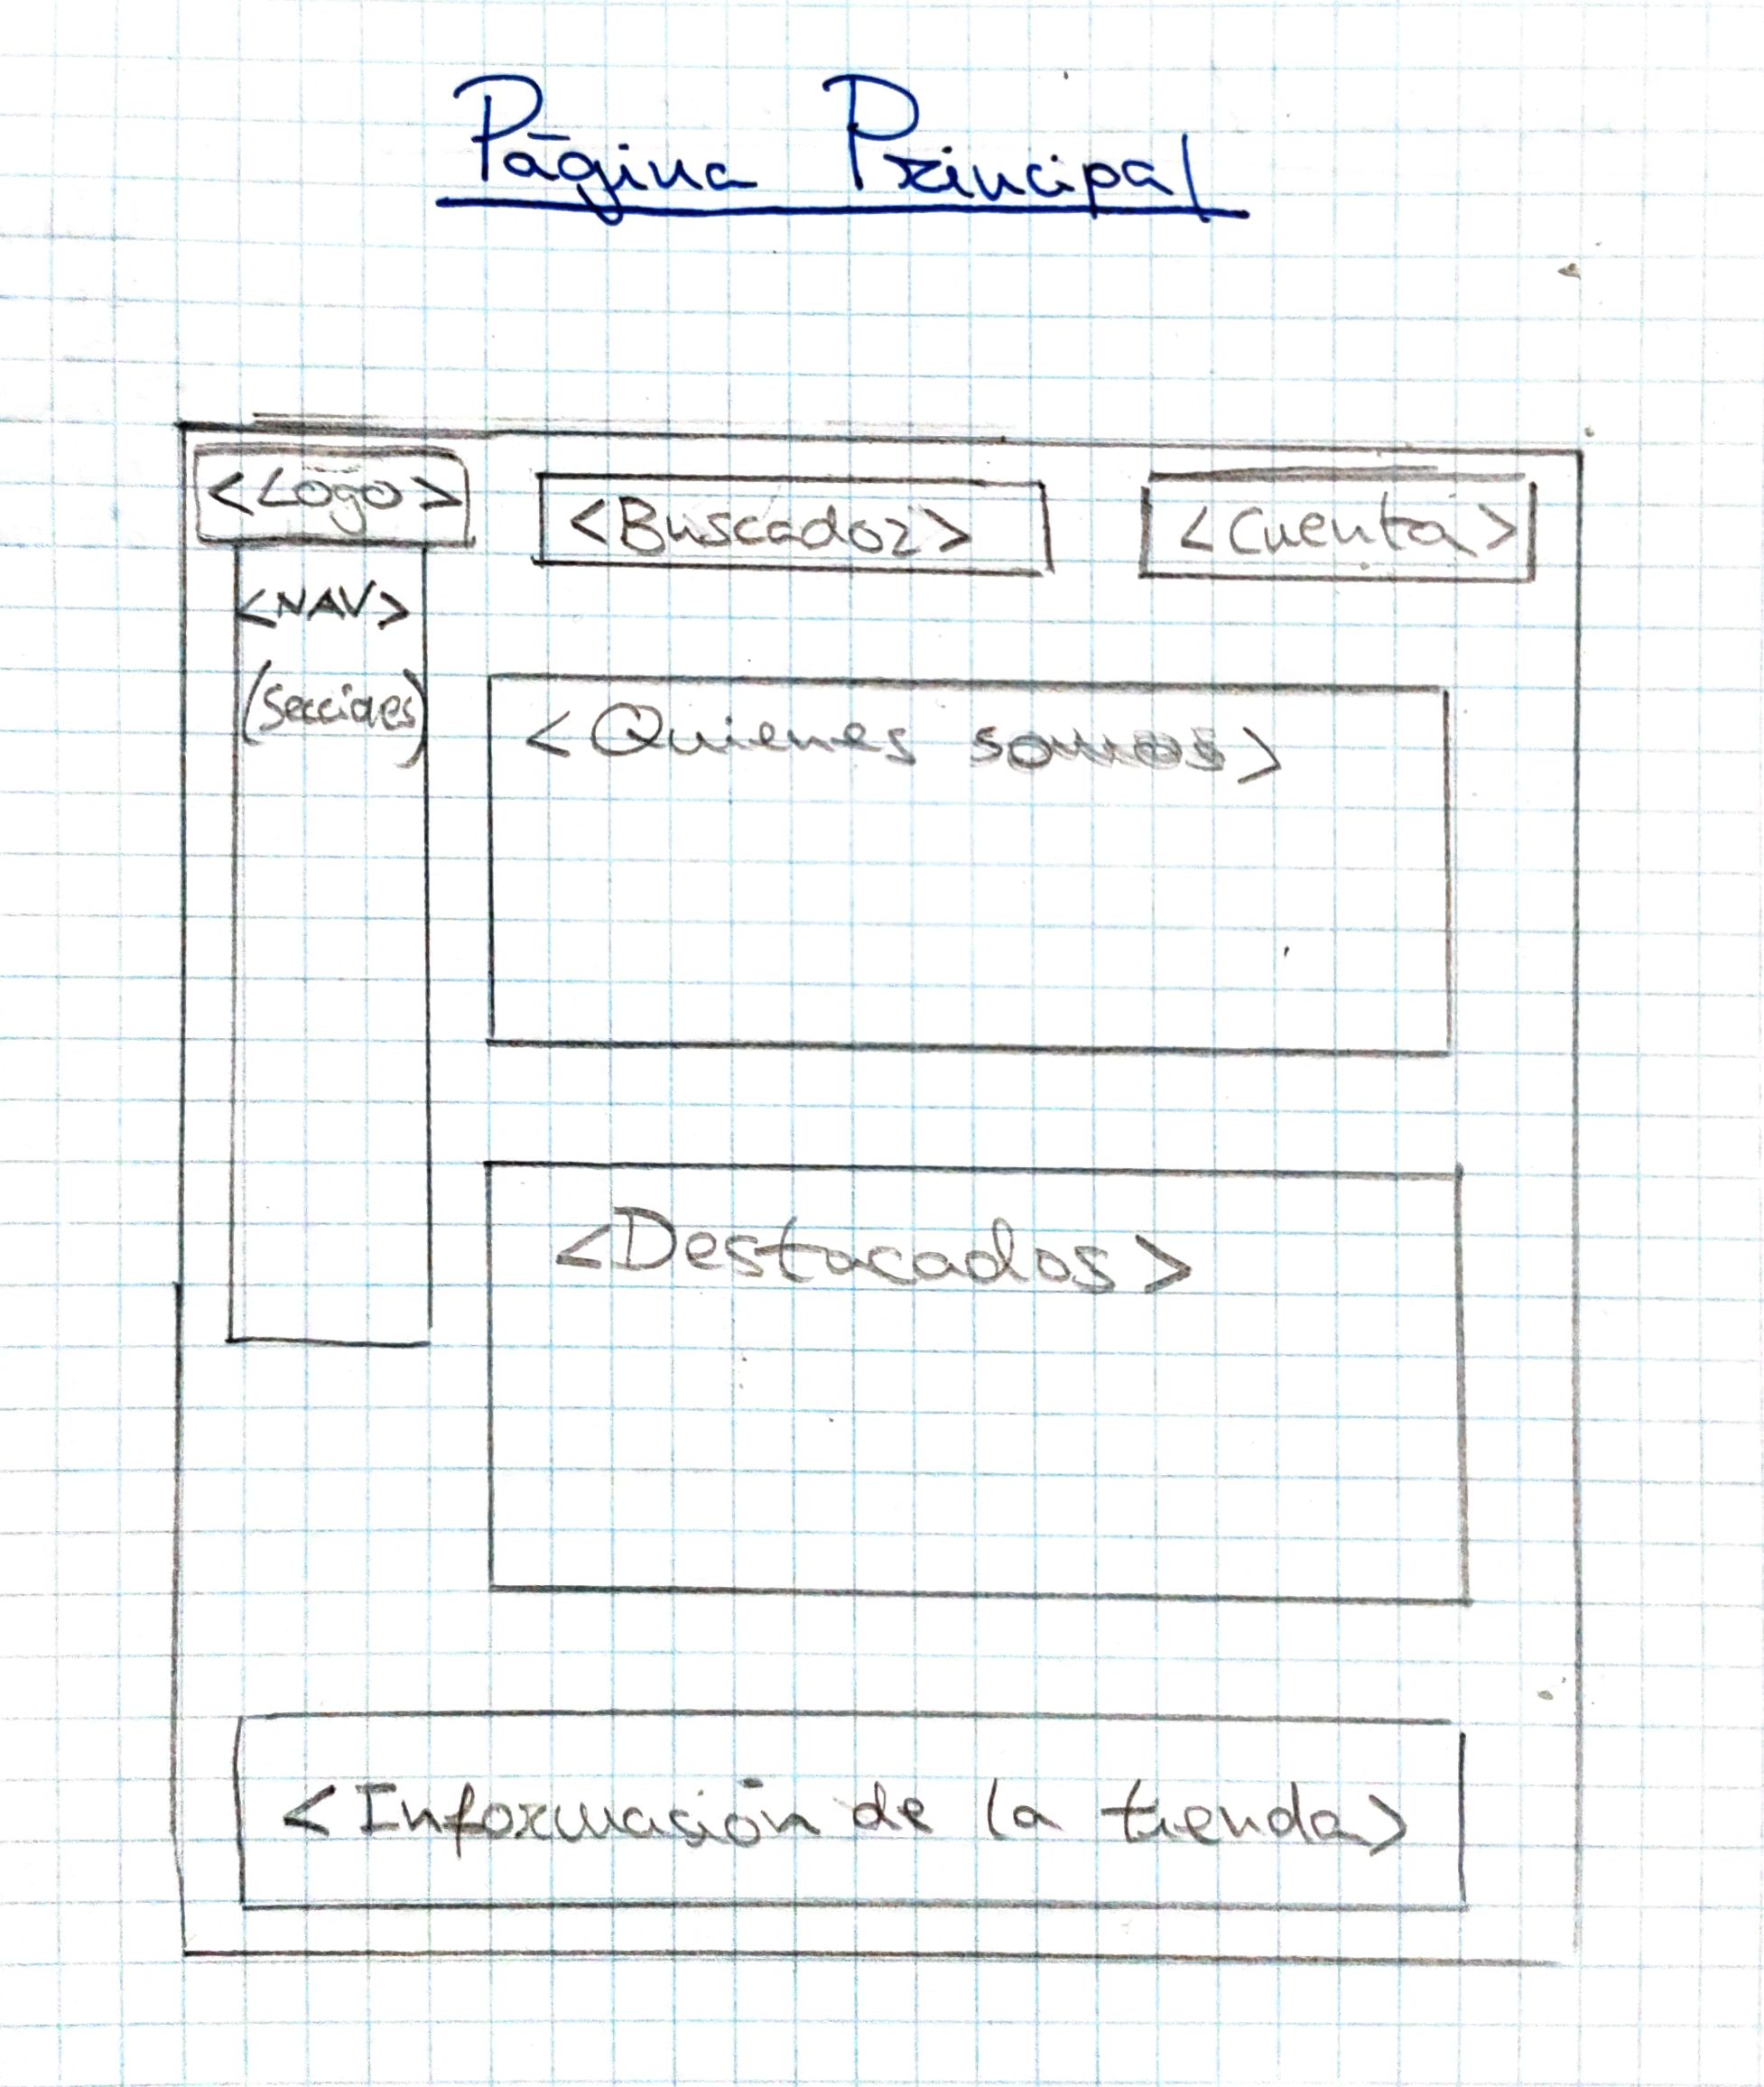 Página Principal
<Logo>
<Buscador>
<Cuenta>
<NAV>
(Secciones)
<Quienes somos>
<Destacados>
<Información de la tienda>